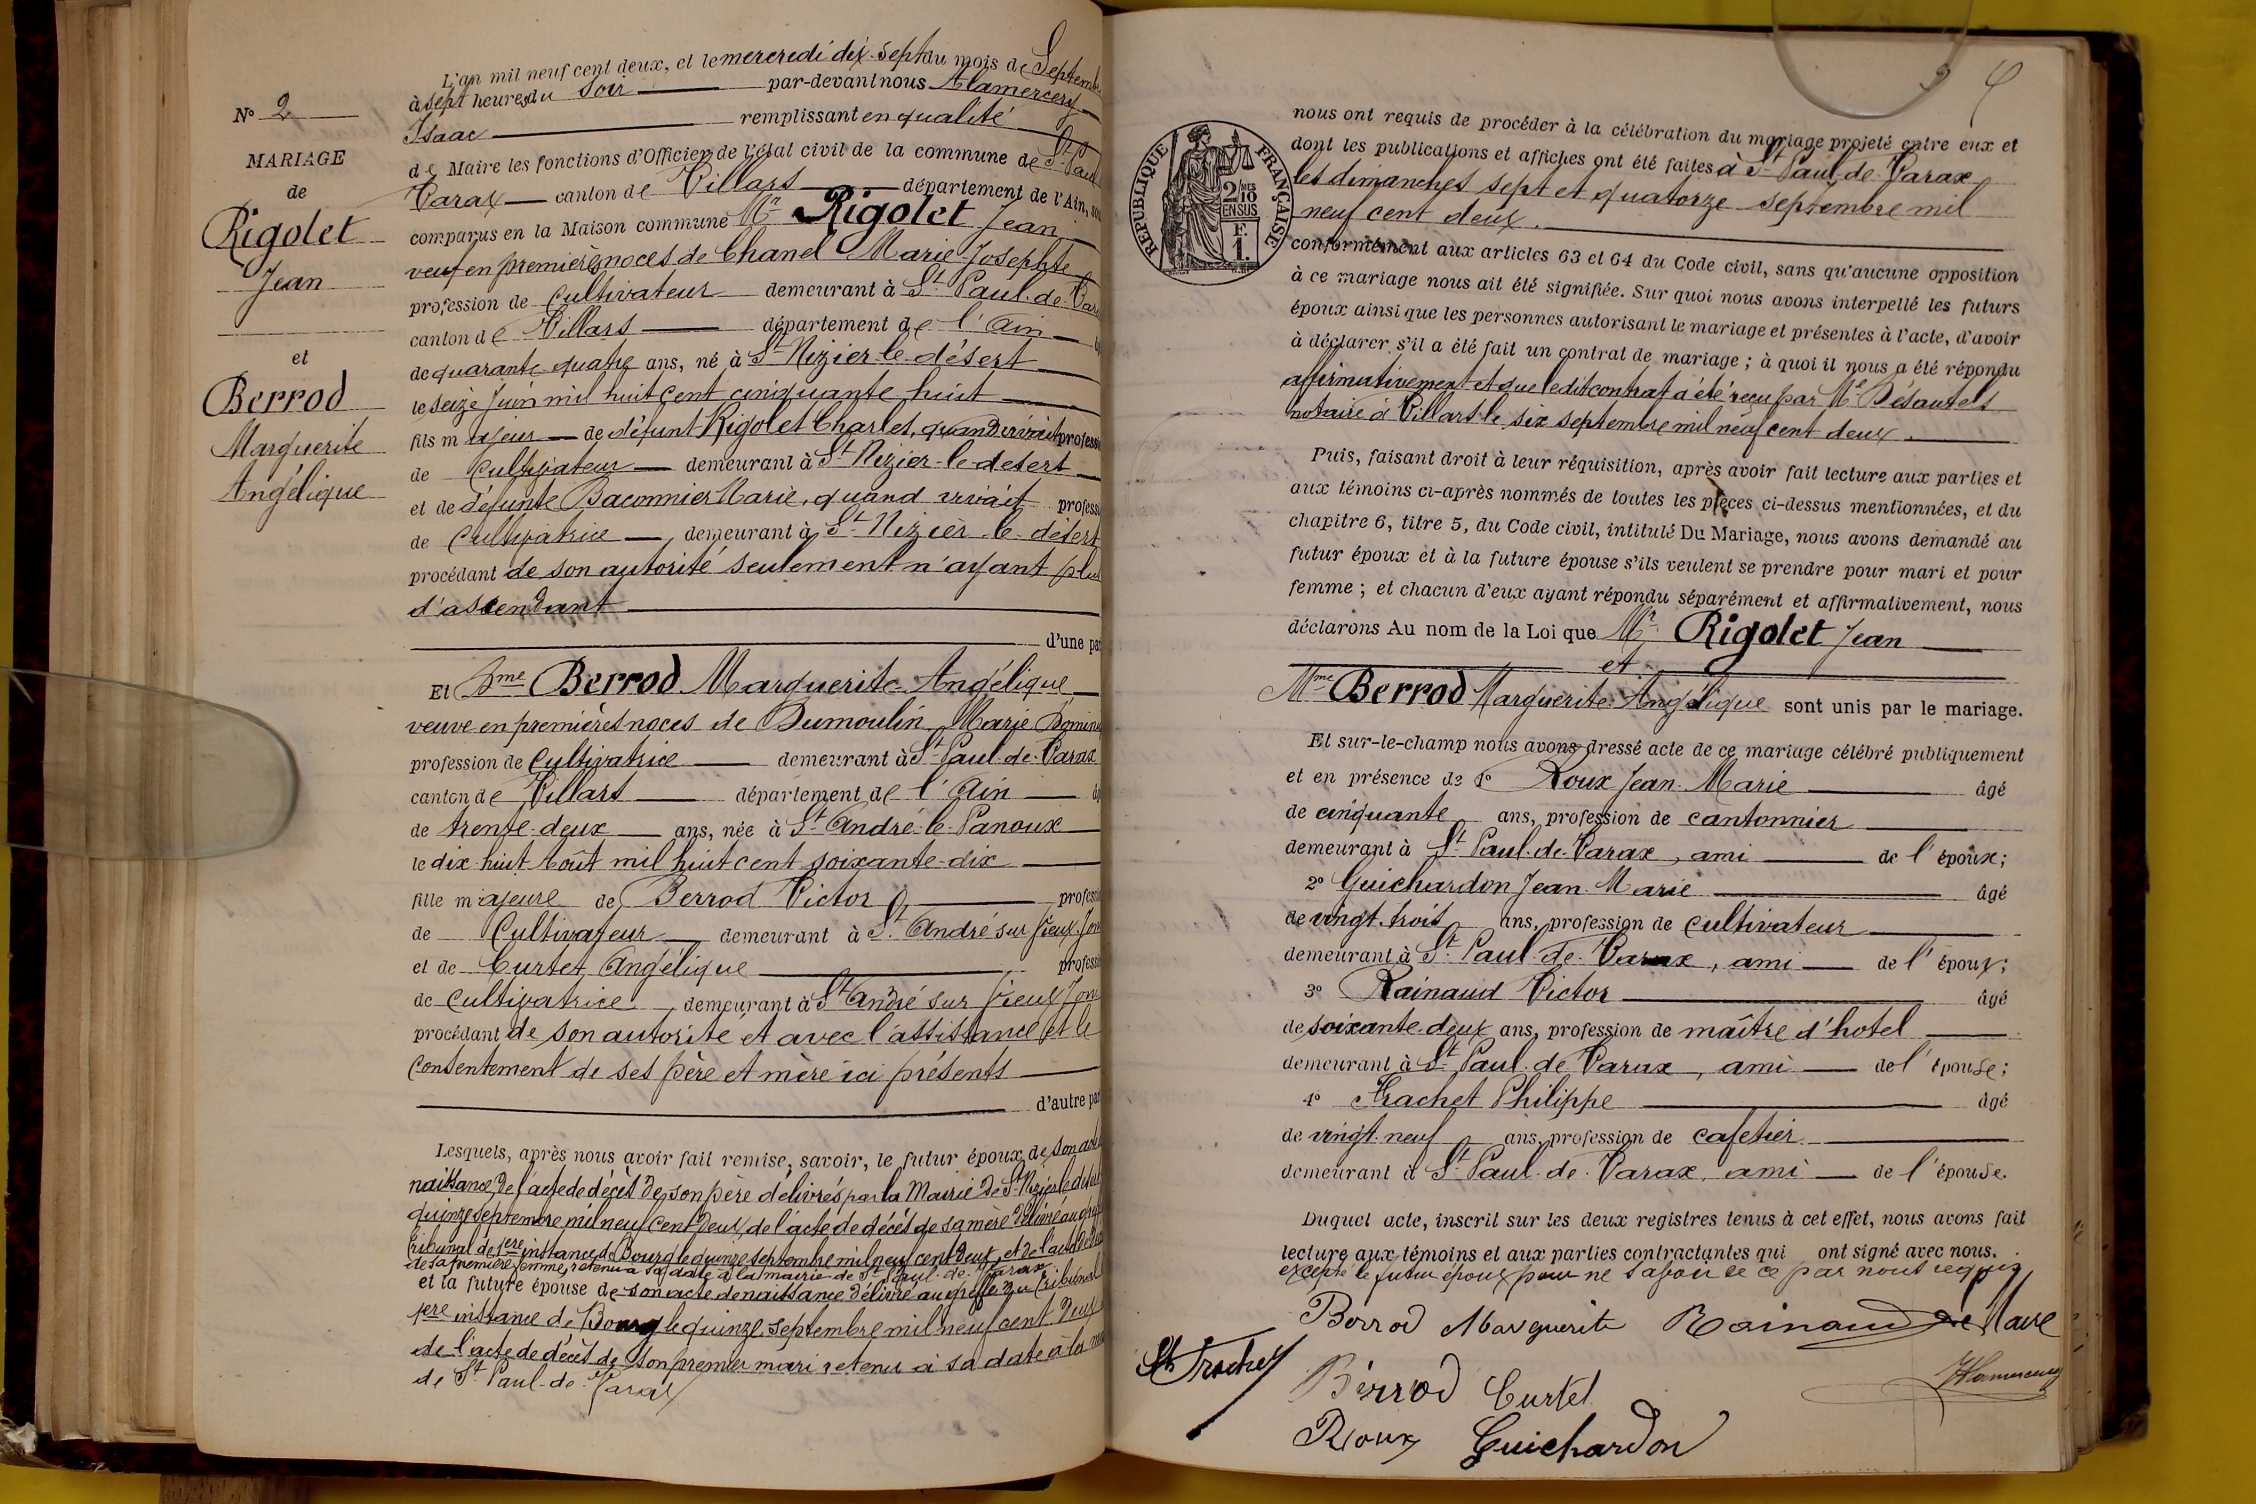 N° 2
MARIAGE
de
Rigolet
Jean
et
Berrod
Marguerite
Angélique
L'an mil neuf cent deux, et le mercredi dix-sept du mois de Septembre
à sept heures du soir par-devant nous Alamercery
Isaac remplissant en qualité
de Maire les fonctions d'Officier de l'état civil de la commune de St Paul
Varax canton de Villars département de l'Ain, sont
comparus en la Maison commune Mr Rigolet Jean
veuf en premières noces de Chanel Marie-Josephte
profession de cultivateur demeurant à St Paul-de-Varax
canton de Villars département de l'Ain
de quarante-quatre ans, né à St Nizier-le-désert
le seize Juin mil huit cent cinquante huit
fils majeur de défunt Rigolet Charles, quand vivait profession
de Cultivateur demeurant à St Nizier-le-désert
et de défunte Baconnier Marie, quand vivait profession
de Cultivatrice demeurant à St Nizier-le-désert
procédant de son autorité seulement n'ayant plus
d'ascendant
d'une part
Et Dme Berrod Marguerite Angélique
veuve en premières noces de Dumoulin Marie
profession de cultivatrice demeurant à St Paul-de-Varax
canton de Villars département de l'Ain
de trente-deux ans, née à St André-le-Panoux
le dix-huit Août mil huit cent soixante-dix
fille majeure de Berrod Victor profession
de Cultivateur demeurant à St André sur Vieux-Jonc
et de Curtet Angélique profession
de cultivatrice demeurant à St André sur Vieux Jonc
procédant de son autorité et avec l'assistance et le
consentement de ses père et mère ici présents
d'autre part
Lesquels, après nous avoir fait remise, savoir, le futur époux de son acte
naissance, de l'acte de décès de son père délivrés par la Mairie de St Nizier le désert
quinze septembre mil neuf cent deux, de l'acte de décès de sa mère délivré au greffe
tribunal de 1ere instance de Bourg le quinze septembre mil neuf cent deux, et de l'acte de décès
de sa première femme, retenu à sa date à la mairie de St Paul-de-Varax
et la future épouse de son acte de naissance délivré au greffe du tribunal
1ere instance de Bourg le quinze septembre mil neuf cent deux
de l'acte de décès de son premier mari retenu à sa date à la
de St Paul-de-Varax
RÉPUBLIQUE FRANÇAISE
2/10 EN SUS
F.
1.
nous ont requis de procéder à la célébration du mariage projeté entre eux et
dont les publications et affiches ont été faites à St Paul-de-Varax
les dimanches sept et quatorze septembre mil
neuf cent deux.
conformément aux articles 63 et 64 du Code civil, sans qu'aucune opposition
à ce mariage nous ait été signifiée. Sur quoi nous avons interpellé les futurs
époux ainsi que les personnes autorisant le mariage et présentes à l'acte, d'avoir
à déclarer s'il a été fait un contrat de mariage ; à quoi il nous a été répondu
affirmativement et que ledit contrat a été reçu par Me Désautels
notaire à Villars le six septembre mil neuf cent deux.
Puis, faisant droit à leur réquisition, après avoir fait lecture aux parties et
aux témoins ci-après nommés de toutes les pièces ci-dessus mentionnées, et du
chapitre 6, titre 5, du Code civil, intitulé Du Mariage, nous avons demandé au
futur époux et à la future épouse s'ils veulent se prendre pour mari et pour
femme ; et chacun d'eux ayant répondu séparément et affirmativement, nous
déclarons Au nom de la Loi que Mr Rigolet Jean
et
Mme Berrod Marguerite-Angélique sont unis par le mariage.
Et sur-le-champ nous avons dressé acte de ce mariage célébré publiquement
et en présence de 1° Roux Jean-Marie âgé
de cinquante ans, profession de cantonnier
demeurant à St Paul-de-Varax, ami de l'époux;
2° Guichardon Jean-Marie âgé
de vingt-trois ans, profession de cultivateur
demeurant à St Paul-de-Varax, ami de l'époux;
3° Rainaud Victor âgé
de soixante-deux ans, profession de maître d'hotel
demeurant à St Paul de Varax, ami de l'épouse;
4° Frachet Philippe âgé
de vingt-neuf ans, profession de cafetier
demeurant à St Paul-de-Varax, ami de l'épouse.
Duquel acte, inscrit sur les deux registres tenus à cet effet, nous avons fait
lecture aux témoins et aux parties contractantes qui ont signé avec nous.
excepté le futur époux pour ne savoir de ce par nous requis
Berrod Marguerite Rainaud Le Maire
Ph Frachet Alamercery
Berrod Curtet
Roux Guichardon